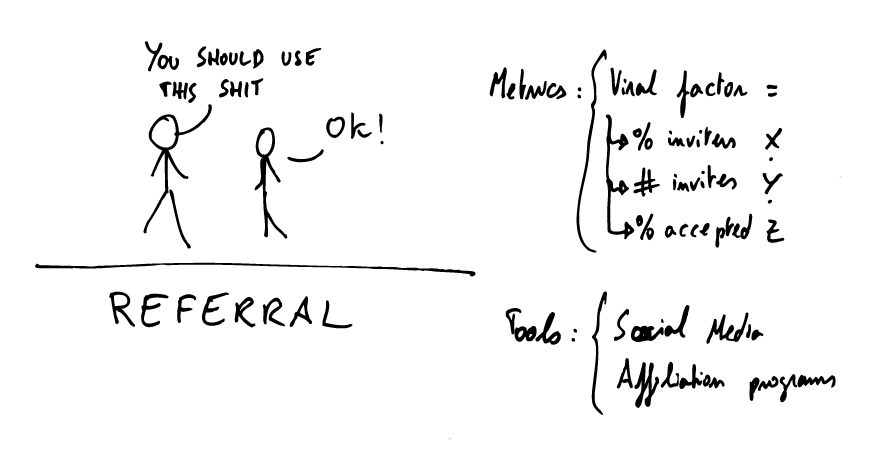 YOU SHOULD USE
THIS SHIT
Ok!
REFERRAL
Metrics: Viral factor =
% inviters X
# invites Y
% accepted Z
Tools: Social Media
Affiliation programs